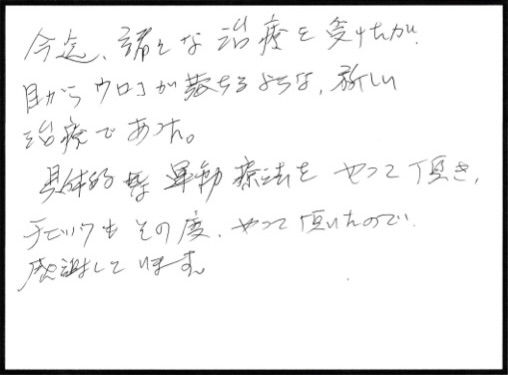 今迄、諸々な治療を受けたが、
目からウロコが落ちるような、新しい
治療であった。
具体的な運動療法をやって頂き、
チェックもその度、やって頂いたので、
感謝しています。